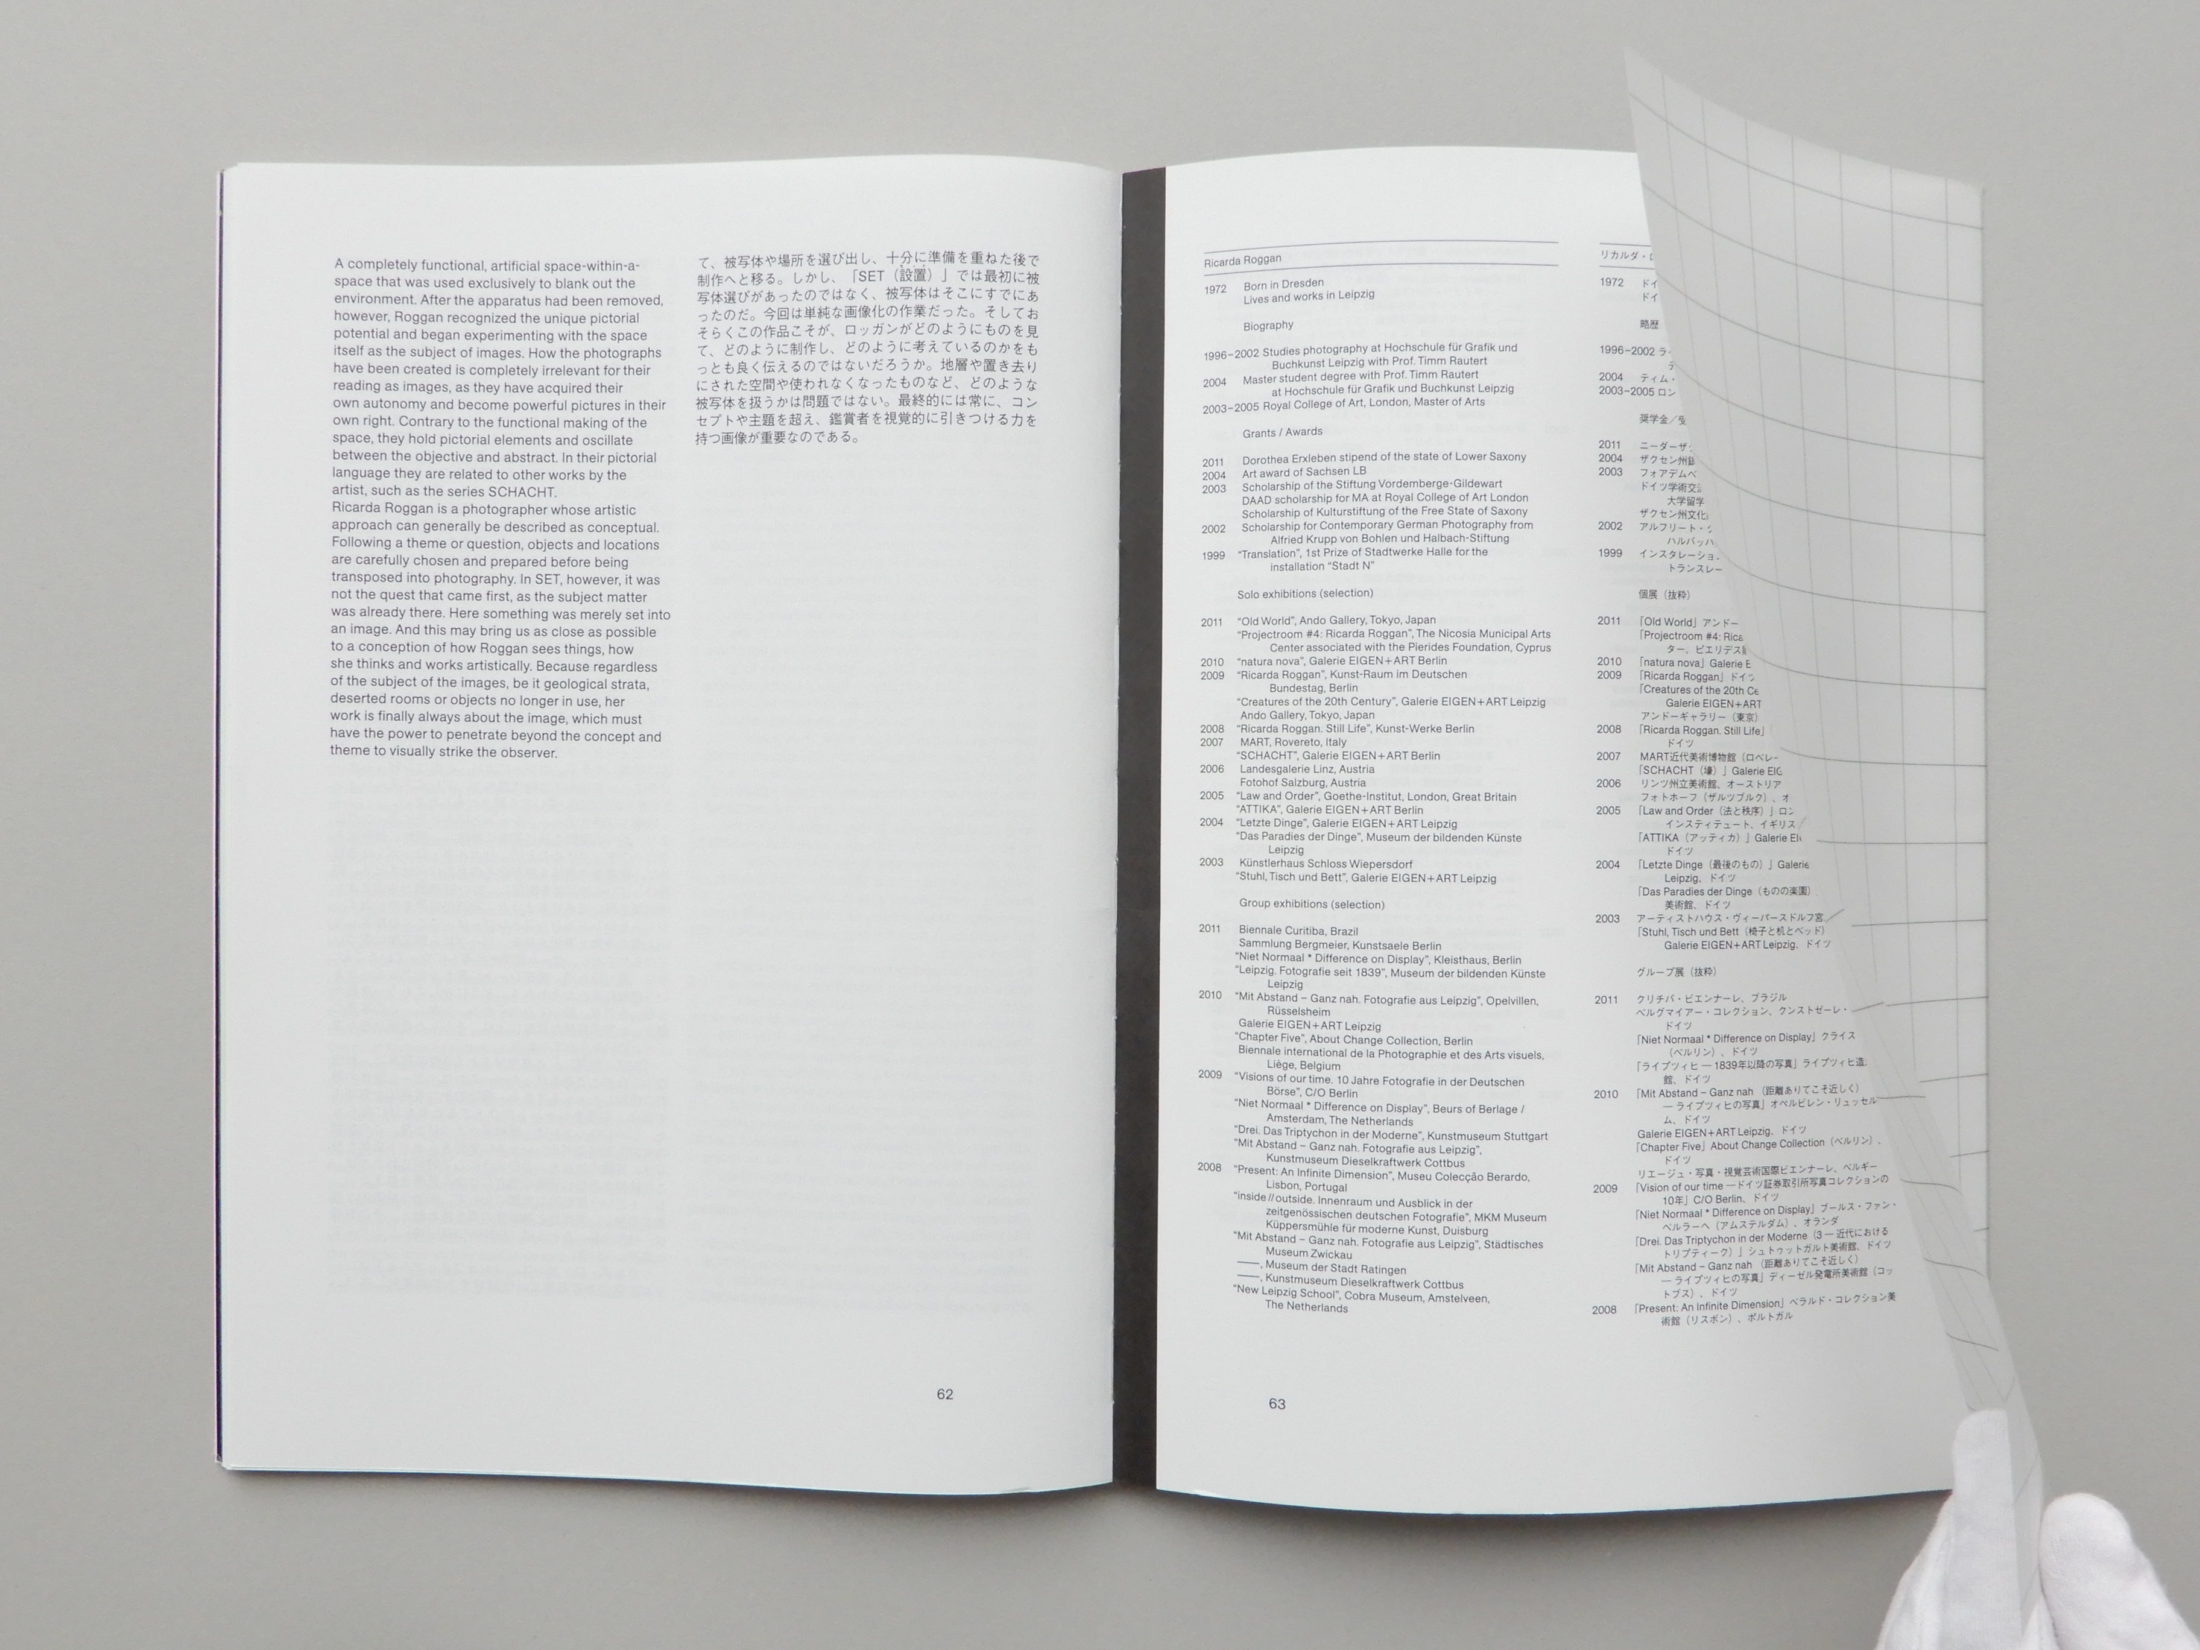 A completely functional, artificial space-within-a-
space that was used exclusively to blank out the
environment. After the apparatus had been removed,
however, Roggan recognized the unique pictorial
potential and began experimenting with the space
itself as the subject of images. How the photographs
have been created is completely irrelevant for their
reading as images, as they have acquired their
own autonomy and become powerful pictures in their
own right. Contrary to the functional making of the
space, they hold pictorial elements and oscillate
between the objective and abstract. In their pictorial
language they are related to other works by the
artist, such as the series SCHACHT.
Ricarda Roggan is a photographer whose artistic
approach can generally be described as conceptual.
Following a theme or question, objects and locations
are carefully chosen and prepared before being
transposed into photography. In SET, however, it was
not the quest that came first, as the subject matter
was already there. Here something was merely set into
an image. And this may bring us as close as possible
to a conception of how Roggan sees things, how
she thinks and works artistically. Because regardless
of the subject of the images, be it geological strata,
deserted rooms or objects no longer in use, her
work is finally always about the image, which must
have the power to penetrate beyond the concept and
theme to visually strike the observer.
て、被写体や場所を選び出し、十分に準備を重ねた後で
制作へと移る。しかし、「SET（設置）」では最初に被
写体選びがあったのではなく、被写体はそこにすでにあ
ったのだ。今回は単純な画像化の作業だった。そしてお
そらくこの作品こそが、ロッガンがどのようにものを見
て、どのように制作し、どのように考えているのかをも
っとも良く伝えるのではないだろうか。地層や置き去り
にされた空間や使われなくなったものなど、どのような
被写体を扱うかは問題ではない。最終的には常に、コン
セプトや主題を超え、鑑賞者を視覚的に引きつける力を
持つ画像が重要なのである。
62
Ricarda Roggan
1972 Born in Dresden
Lives and works in Leipzig
Biography
1996–2002 Studies photography at Hochschule für Grafik und
Buchkunst Leipzig with Prof. Timm Rautert
2004 Master student degree with Prof. Timm Rautert
at Hochschule für Grafik und Buchkunst Leipzig
2003–2005 Royal College of Art, London, Master of Arts
Grants / Awards
2011 Dorothea Erxleben stipend of the state of Lower Saxony
2004 Art award of Sachsen LB
2003 Scholarship of the Stiftung Vordemberge-Gildewart
DAAD scholarship for MA at Royal College of Art London
Scholarship of Kulturstiftung of the Free State of Saxony
2002 Scholarship for Contemporary German Photography from
Alfried Krupp von Bohlen und Halbach-Stiftung
1999 “Translation”, 1st Prize of Stadtwerke Halle for the
installation “Stadt N”
Solo exhibitions (selection)
2011 “Old World”, Ando Gallery, Tokyo, Japan
“Projectroom #4: Ricarda Roggan”, The Nicosia Municipal Arts
Center associated with the Pierides Foundation, Cyprus
2010 “natura nova”, Galerie EIGEN+ART Berlin
2009 “Ricarda Roggan”, Kunst-Raum im Deutschen
Bundestag, Berlin
“Creatures of the 20th Century”, Galerie EIGEN+ART Leipzig
Ando Gallery, Tokyo, Japan
2008 “Ricarda Roggan. Still Life”, Kunst-Werke Berlin
2007 MART, Rovereto, Italy
“SCHACHT”, Galerie EIGEN+ART Berlin
2006 Landesgalerie Linz, Austria
Fotohof Salzburg, Austria
2005 “Law and Order”, Goethe-Institut, London, Great Britain
“ATTIKA”, Galerie EIGEN+ART Berlin
2004 “Letzte Dinge”, Galerie EIGEN+ART Leipzig
“Das Paradies der Dinge”, Museum der bildenden Künste
Leipzig
2003 Künstlerhaus Schloss Wiepersdorf
“Stuhl, Tisch und Bett”, Galerie EIGEN+ART Leipzig
Group exhibitions (selection)
2011 Biennale Curitiba, Brazil
Sammlung Bergmeier, Kunstsaele Berlin
“Niet Normaal * Difference on Display”, Kleisthaus, Berlin
“Leipzig. Fotografie seit 1839”, Museum der bildenden Künste
Leipzig
2010 “Mit Abstand – Ganz nah. Fotografie aus Leipzig”, Opelvillen,
Rüsselsheim
Galerie EIGEN+ART Leipzig
“Chapter Five”, About Change Collection, Berlin
Biennale international de la Photographie et des Arts visuels,
Liège, Belgium
2009 “Visions of our time. 10 Jahre Fotografie in der Deutschen
Börse”, C/O Berlin
“Niet Normaal * Difference on Display”, Beurs of Berlage /
Amsterdam, The Netherlands
“Drei. Das Triptychon in der Moderne”, Kunstmuseum Stuttgart
“Mit Abstand – Ganz nah. Fotografie aus Leipzig”,
Kunstmuseum Dieselkraftwerk Cottbus
2008 “Present: An Infinite Dimension”, Museu Colecção Berardo,
Lisbon, Portugal
“inside // outside. Innenraum und Ausblick in der
zeitgenössischen deutschen Fotografie”, MKM Museum
Küppersmühle für moderne Kunst, Duisburg
“Mit Abstand – Ganz nah. Fotografie aus Leipzig”, Städtisches
Museum Zwickau
——, Museum der Stadt Ratingen
——, Kunstmuseum Dieselkraftwerk Cottbus
“New Leipzig School”, Cobra Museum, Amstelveen,
The Netherlands
リカルダ・
1972 ドイ
ドイ
略歴
1996–2002 ラ
2004 ティム・
2003–2005 ロン
奨学金／
2011 ニーダーザ
2004 ザクセン州
2003 フォアデムベ
ドイツ学術交
大学留学
ザクセン州文化
2002 アルフリート・
ハルバッハ
1999 インスタレーショ
トランスレー
個展（抜粋）
2011 「Old World」アンドー
「Projectroom #4: Rica
ター、ピエリデス
2010 「natura nova」Galerie E
2009 「Ricarda Roggan」ドイツ
「Creatures of the 20th Ce
Galerie EIGEN+ART
アンドーギャラリー（東京）
2008 「Ricarda Roggan. Still Life」
ドイツ
2007 MART近代美術博物館（ロベレー
「SCHACHT（壕）」Galerie EIG
2006 リンツ州立美術館、オーストリア
フォトホーフ（ザルツブルク）、オ
2005 「Law and Order（法と秩序）」ロン
インスティテュート、イギリス
「ATTIKA（アッティカ）」Galerie EI
ドイツ
2004 「Letzte Dinge（最後のもの）」Galerie
Leipzig、ドイツ
「Das Paradies der Dinge（ものの楽園）
美術館、ドイツ
2003 アーティストハウス・ヴィーパースドルフ宮
「Stuhl, Tisch und Bett（椅子と机とベッド）
Galerie EIGEN+ART Leipzig、ドイツ
グループ展（抜粋）
2011 クリチバ・ビエンナーレ、ブラジル
ベルグマイアー・コレクション、クンストゼーレ・
ドイツ
「Niet Normaal * Difference on Display」クライス
（ベルリン）、ドイツ
「ライプツィヒ — 1839年以降の写真」ライプツィヒ造
館、ドイツ
2010 「Mit Abstand – Ganz nah （距離ありてこそ近しく）
— ライプツィヒの写真」オペルビレン・リュッセル
ム、ドイツ
Galerie EIGEN+ART Leipzig、ドイツ
「Chapter Five」About Change Collection（ベルリン）、
ドイツ
リエージュ・写真・視覚芸術国際ビエンナーレ、ベルギー
2009 「Vision of our time —ドイツ証券取引所写真コレクションの
10年」C/O Berlin、ドイツ
「Niet Normaal * Difference on Display」ブールス・ファン・
ベルラーヘ（アムステルダム）、オランダ
「Drei. Das Triptychon in der Moderne（3 — 近代における
トリプティーク）」シュトゥットガルト美術館、ドイツ
「Mit Abstand – Ganz nah （距離ありてこそ近しく）
— ライプツィヒの写真」ディーゼル発電所美術館（コッ
トブス）、ドイツ
2008 「Present: An Infinite Dimension」ベラルド・コレクション美
術館（リスボン）、ポルトガル
63